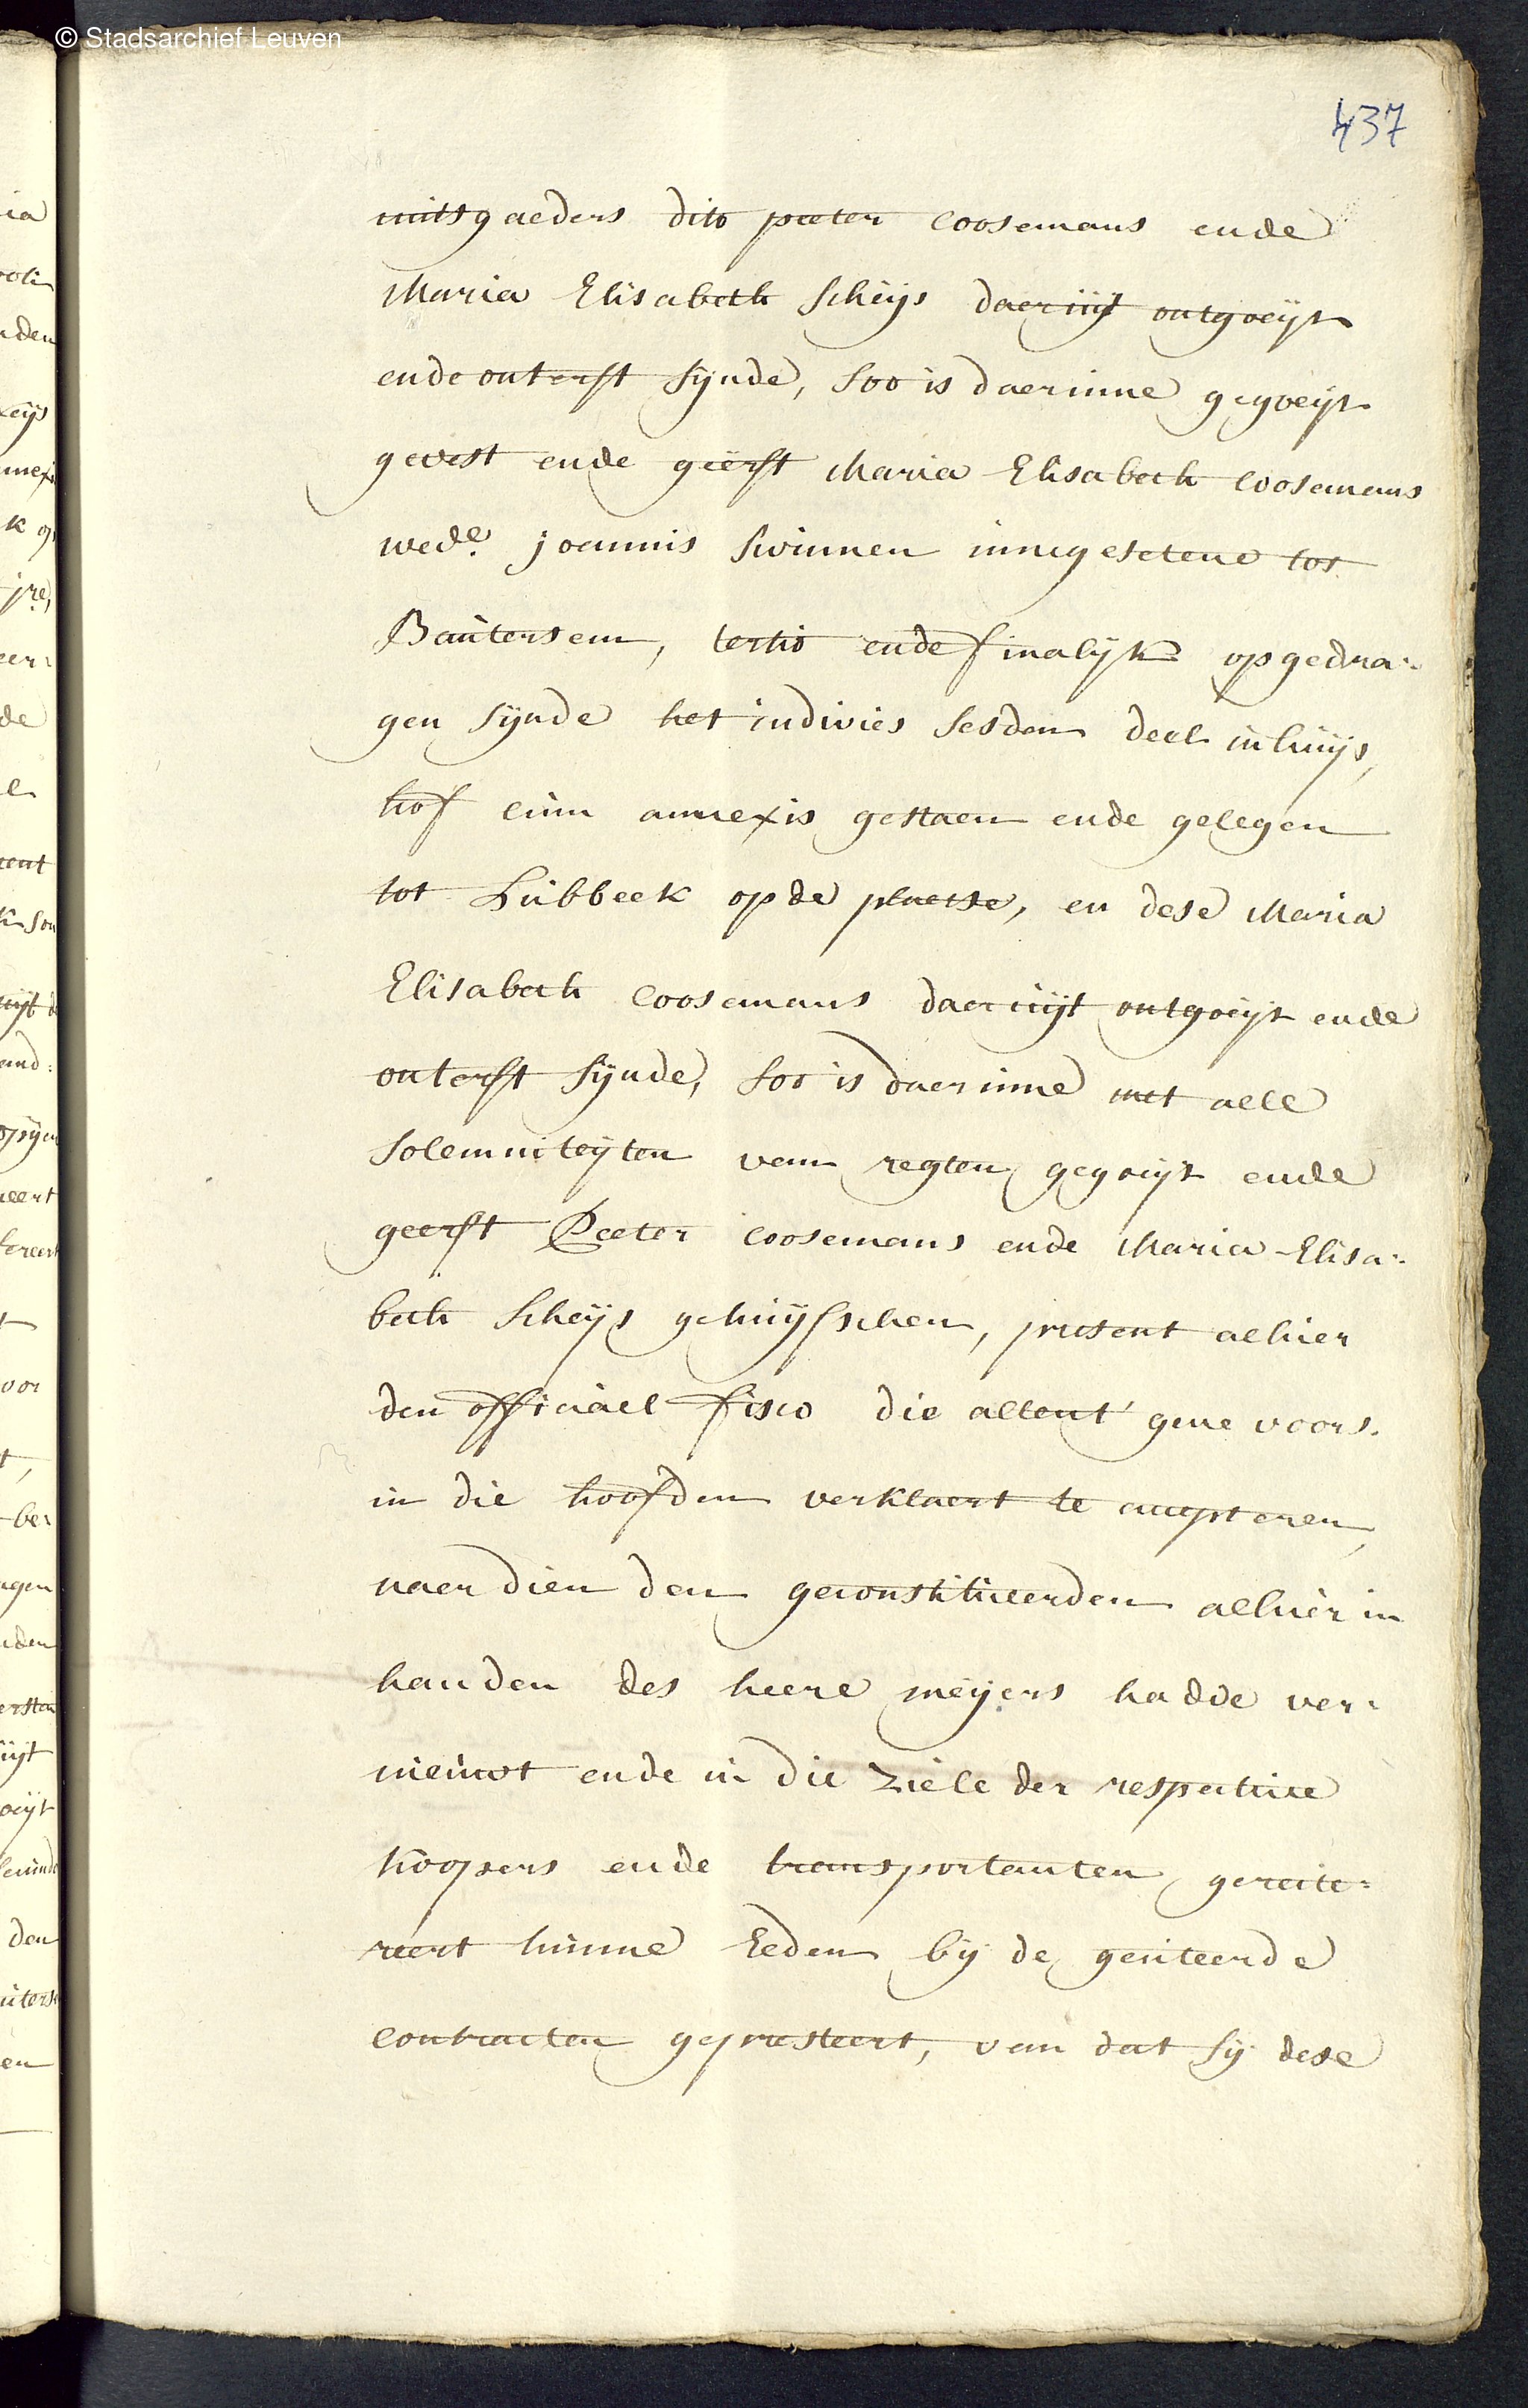 © Stadsarchief Leuven
437
mitsgaeders dito peeter Coosemans ende
Maria Elisabeth Scheijs daeruijt ontgoeijt
ende onterft sijnde, soo is daerinne gegoeijt
gevest ende geërft Maria Elisabeth Coosemans
wed.e joannis Swinnen innegesetene tot
Bautersem, tertio ende finalijk opgedra=
gen sijnde het indivies sesden deel in huijs,
hof cum annexis gestaen ende gelegen
tot Lubbeek op de plaetse, en dese Maria
Elisabeth Coosemans daeruijt ontgoeijt ende
onterft sijnde, soo is daerinne met alle
solemniteijten van regten gegoeijt ende
geerft Peeter Coosemans ende Maria Elisa=
beth Scheijs gehuijsschen, present alhier
den officiael fisco die allent' gene voors.
in die hoofden verklaert te accepteren,
naer dien den geconstitueerden alhier in
handen des heere meijers hadde ver=
nieuwt ende in die ziele der respective
koopers ende transportanten gereite=
reert hunne Eeden bij de geciteerde
contracten gepresteert, van dat sij dese